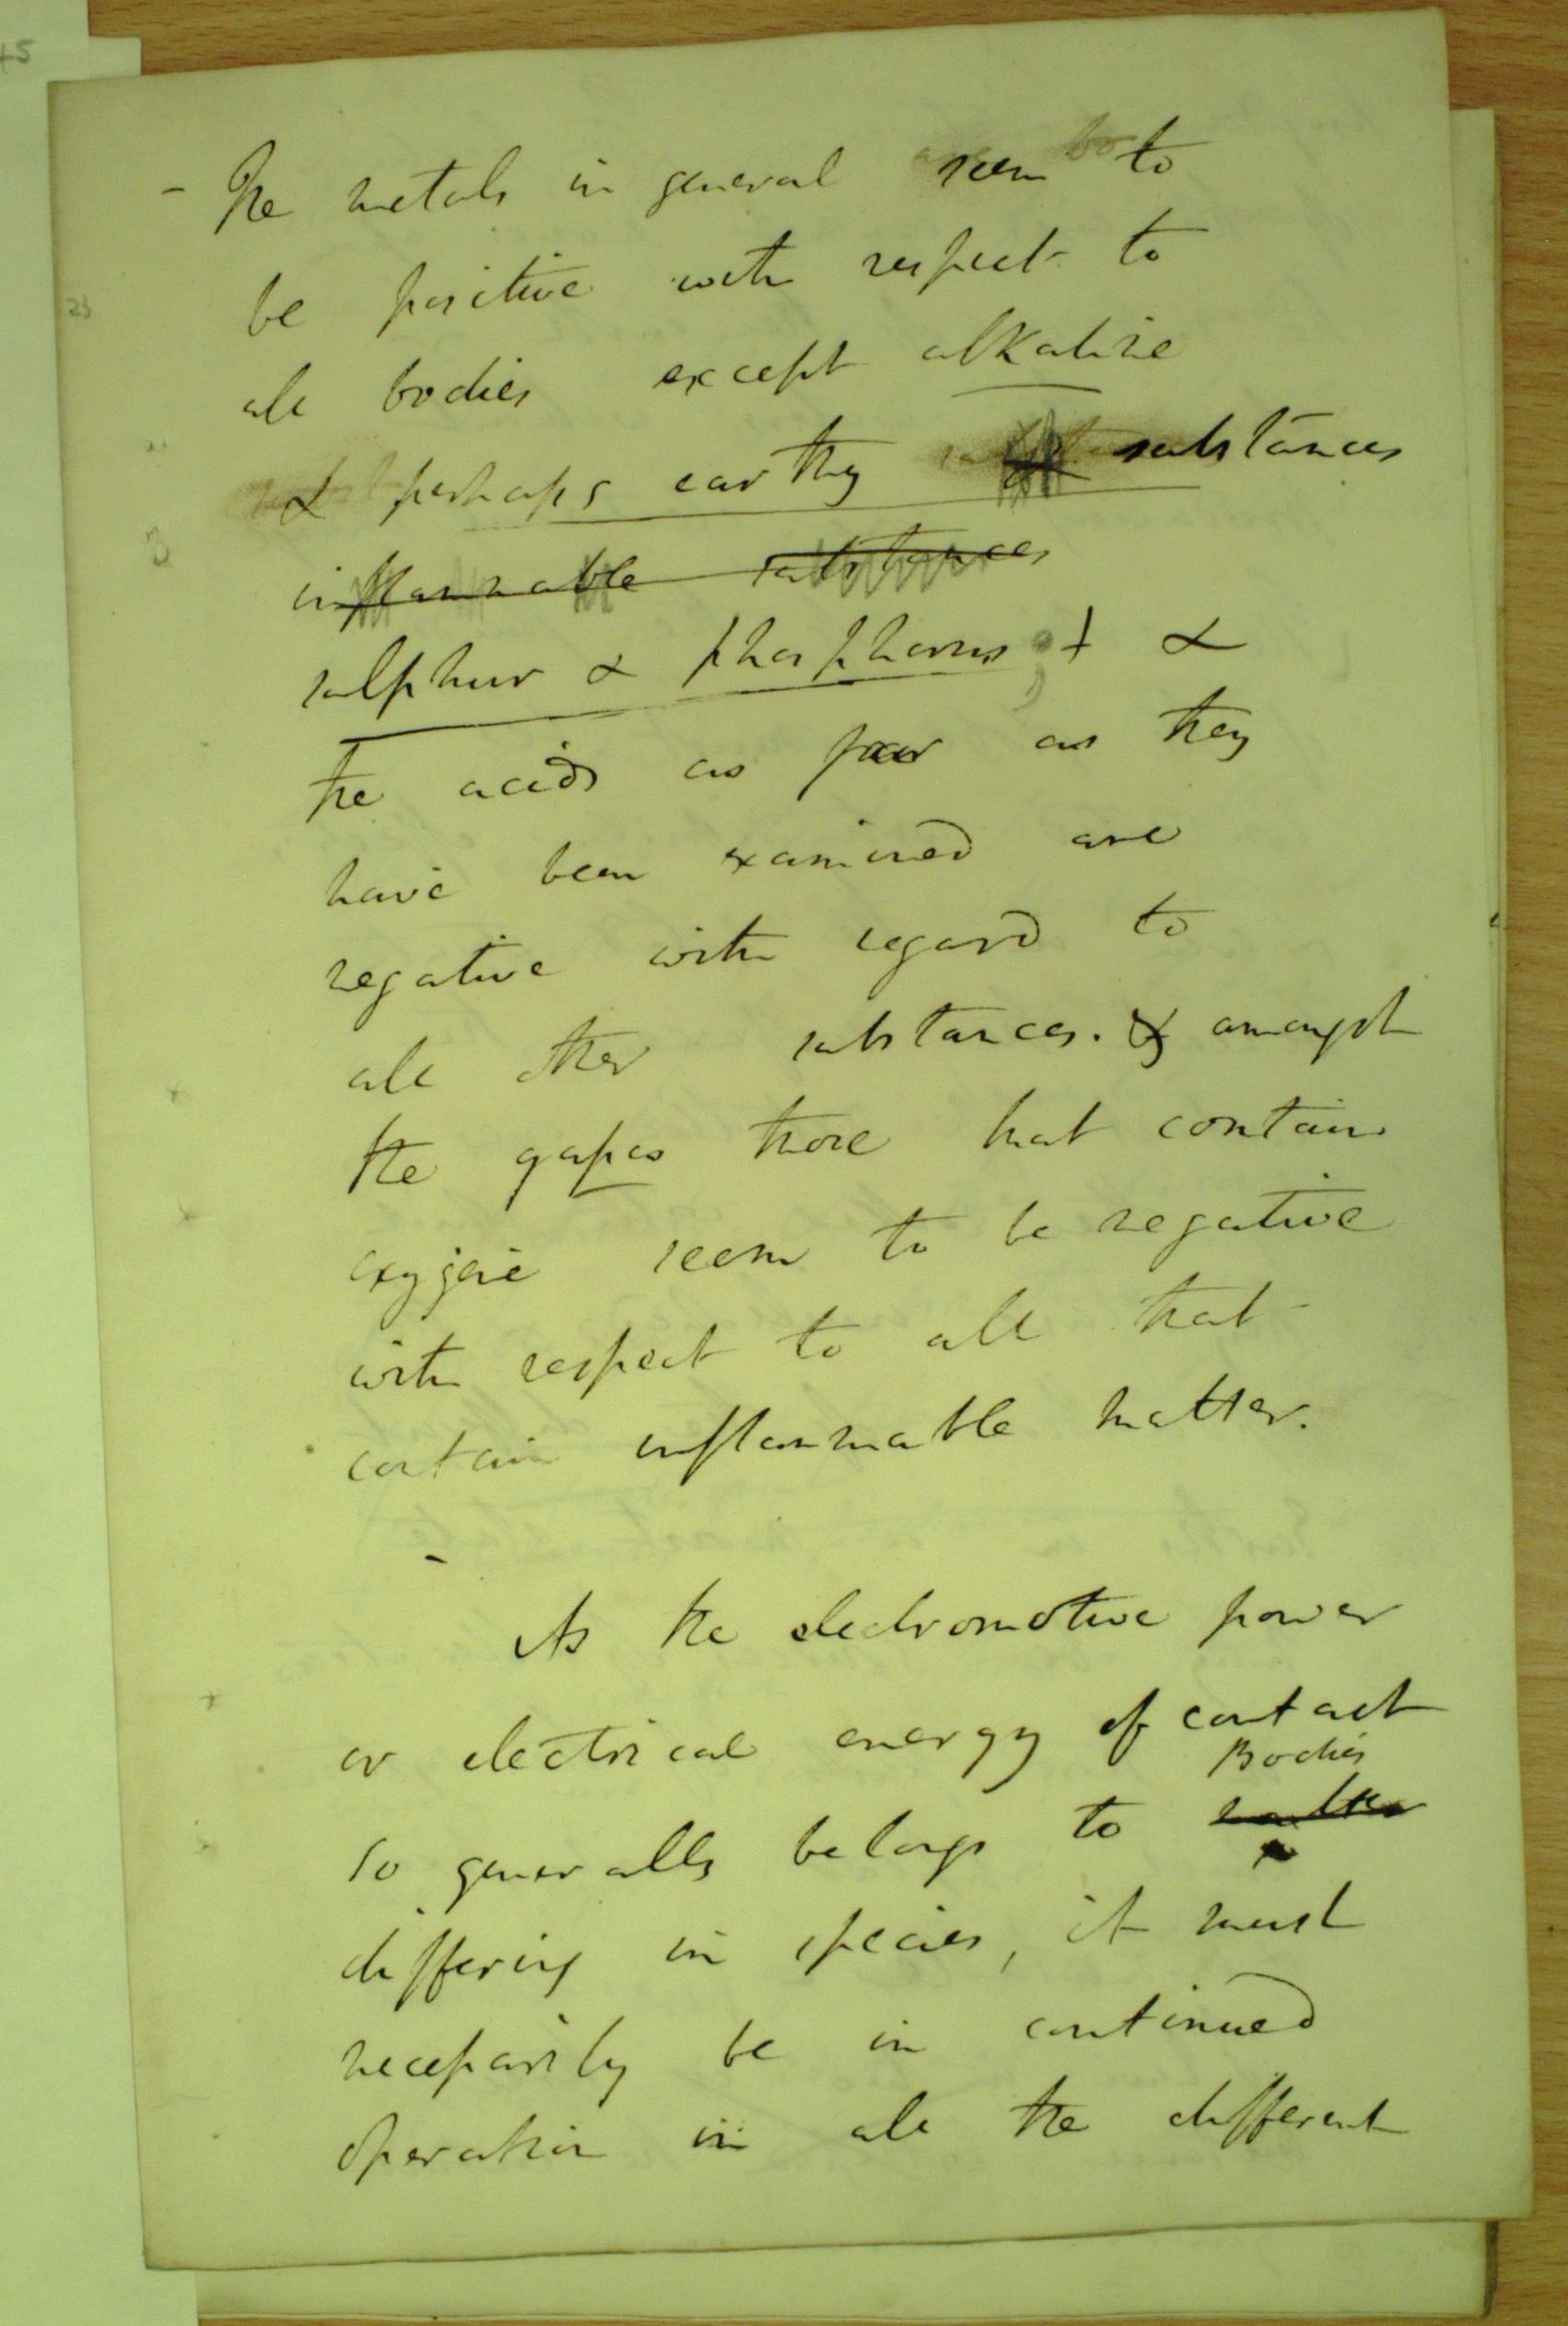 - The metals in general seem to
be positive with respect to
all bodies except alkaline
& perhaps earthy substances
inflammable substances
sulphur & phosphorus + &
the acids as far as they
have been examined are
negative with regard to
all other substances. & amongst
the gasses those that contain
oxygene seem to be negative
with respect to all that
contain inflammable matter.
-
As the electromotive power
or electrical energy of contact
Bodies
so generally belongs to matter
differing in species, it must
necessarily be in continued
operation in all the different
45